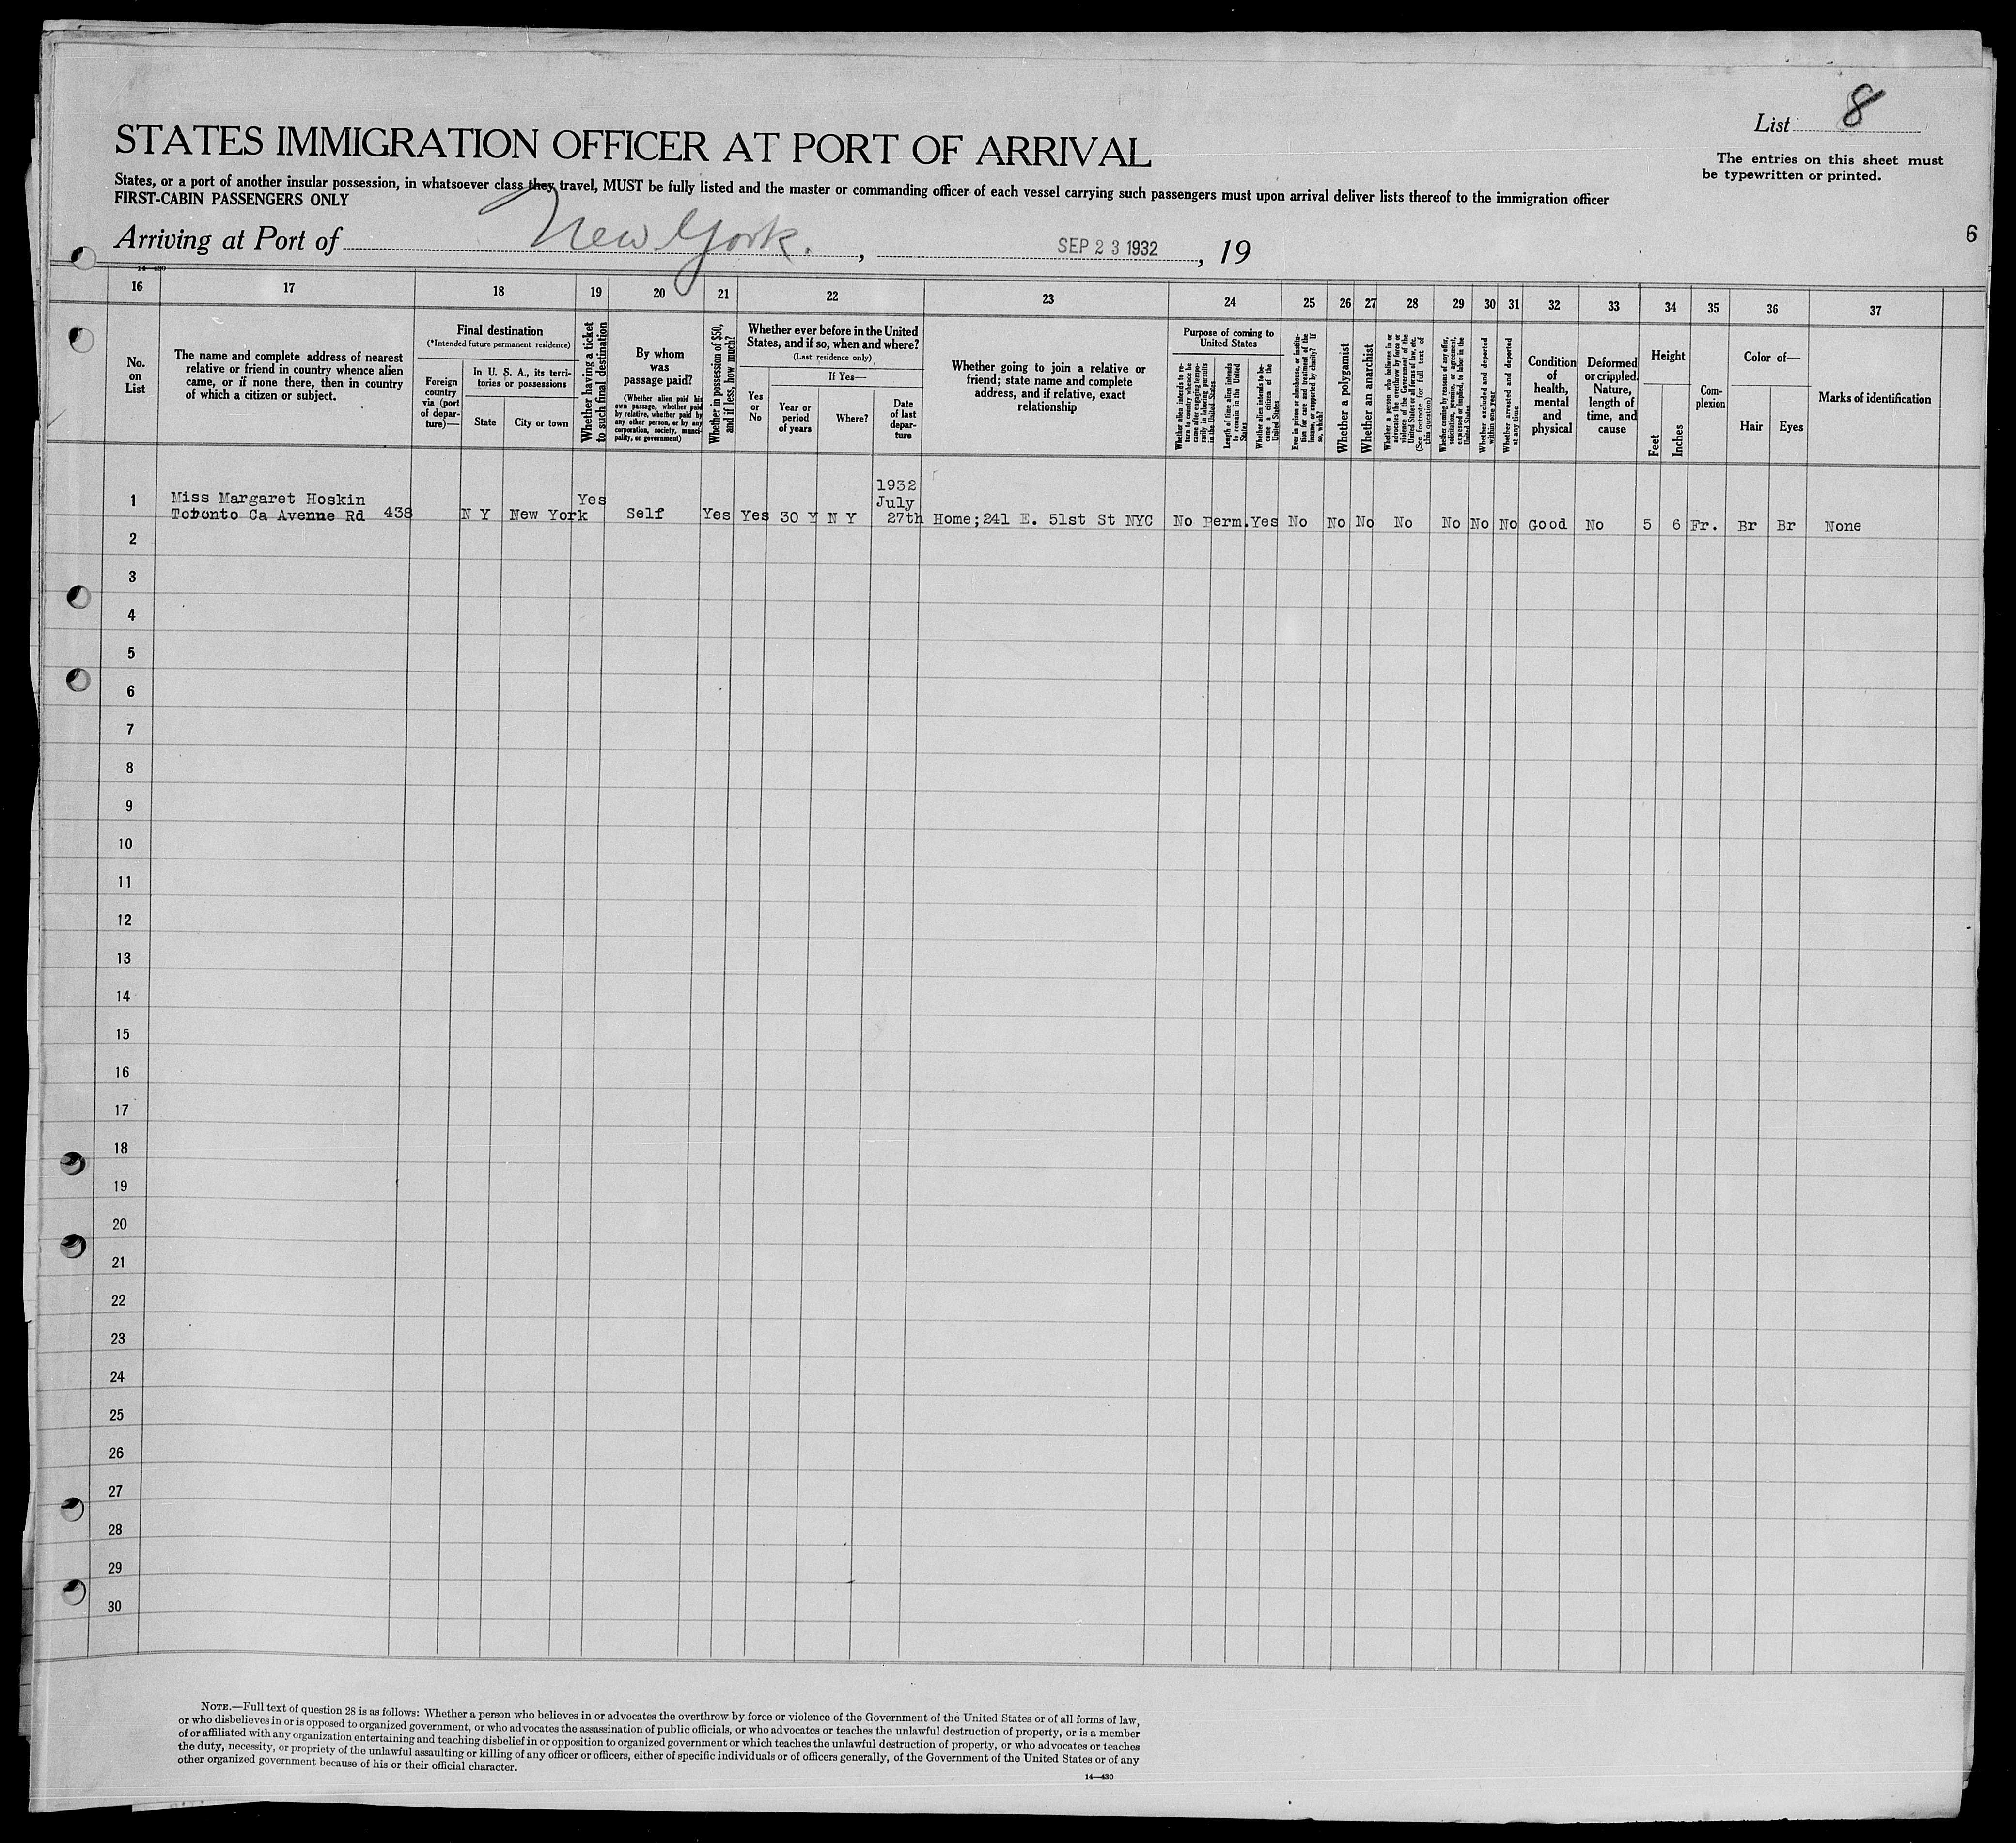 List 8
STATES IMMIGRATION OFFICER AT PORT OF ARRIVAL
The entries on this sheet must
be typewritten or printed.
States, or a port of another insular possession, in whatsoever class they travel, MUST be fully listed and the master or commanding officer of each vessel carrying such passengers must upon arrival deliver lists thereof to the immigration officer
FIRST-CABIN PASSENGERS ONLY
Arriving at Port of New York. , SEP 23 1932 , 19
6
14—430
16 17 18 19 20 21 22 23 24 25 26 27 28 29 30 31 32 33 34 35 36 37
No.
on
List
The name and complete address of nearest
relative or friend in country whence alien
came, or if none there, then in country
of which a citizen or subject.
Final destination
(*Intended future permanent residence)
Foreign
country
via (port
of depar-
ture)—
In U. S. A., its terri-
tories or possessions
State
City or town
Whether having a ticket
to such final destination
By whom
was
passage paid?
(Whether alien paid his
own passage, whether paid
by relative, whether paid by
any other person, or by any
corporation, society, munici-
pality, or government)
Whether in possession of $50,
and if less, how much?
Whether ever before in the United
States, and if so, when and where?
(Last residence only)
Yes
or
No
If Yes—
Year or
period
of years
Where?
Date
of last
depar-
ture
Whether going to join a relative or
friend; state name and complete
address, and if relative, exact
relationship
Purpose of coming to
United States
Whether alien intends to re-
turn to country whence he
came after engaging tempo-
rarily in laboring pursuits
in the United States
Length of time alien intends
to remain in the United
States
Whether alien intends to be-
come a citizen of the
United States
Ever in prison or almshouse, or institu-
tion for care and treatment of the
insane, or supported by charity? If
so, which?
Whether a polygamist
Whether an anarchist
Whether a person who believes in or
advocates the overthrow by force or
violence of the Government of the
United States or all forms of law, etc.
(See footnote for full text of
this question)
Whether coming by reasons of any offer,
solicitation, promise, or agreement,
expressed or implied, to labor in the
United States
Whether excluded and deported
within one year
Whether arrested and deported
at any time
Condition
of
health,
mental
and
physical
Deformed
or crippled.
Nature,
length of
time, and
cause
Height
Feet
Inches
Com-
plexion
Color of—
Hair
Eyes
Marks of identification
1 Miss Margaret Hoskin
Toronto Ca Avenne Rd 438 N Y New York Yes Self Yes Yes 30 Y N Y 1932
July
27th Home;241 E. 51st St NYC No Perm. Yes No No No No No No No Good No 5 6 Fr. Br Br None
2
3
4
5
6
7
8
9
10
11
12
13
14
15
16
17
18
19
20
21
22
23
24
25
26
27
28
29
30
NOTE.—Full text of question 28 is as follows: Whether a person who believes in or advocates the overthrow by force or violence of the Government of the United States or of all forms of law,
or who disbelieves in or is opposed to organized government, or who advocates the assassination of public officials, or who advocates or teaches the unlawful destruction of property, or is a member
of or affiliated with any organization entertaining and teaching disbelief in or opposition to organized government or which teaches the unlawful destruction of property, or who advocates or teaches
the duty, necessity, or propriety of the unlawful assaulting or killing of any officer or officers, either of specific individuals or of officers generally, of the Government of the United States or of any
other organized government because of his or their official character.
14—430